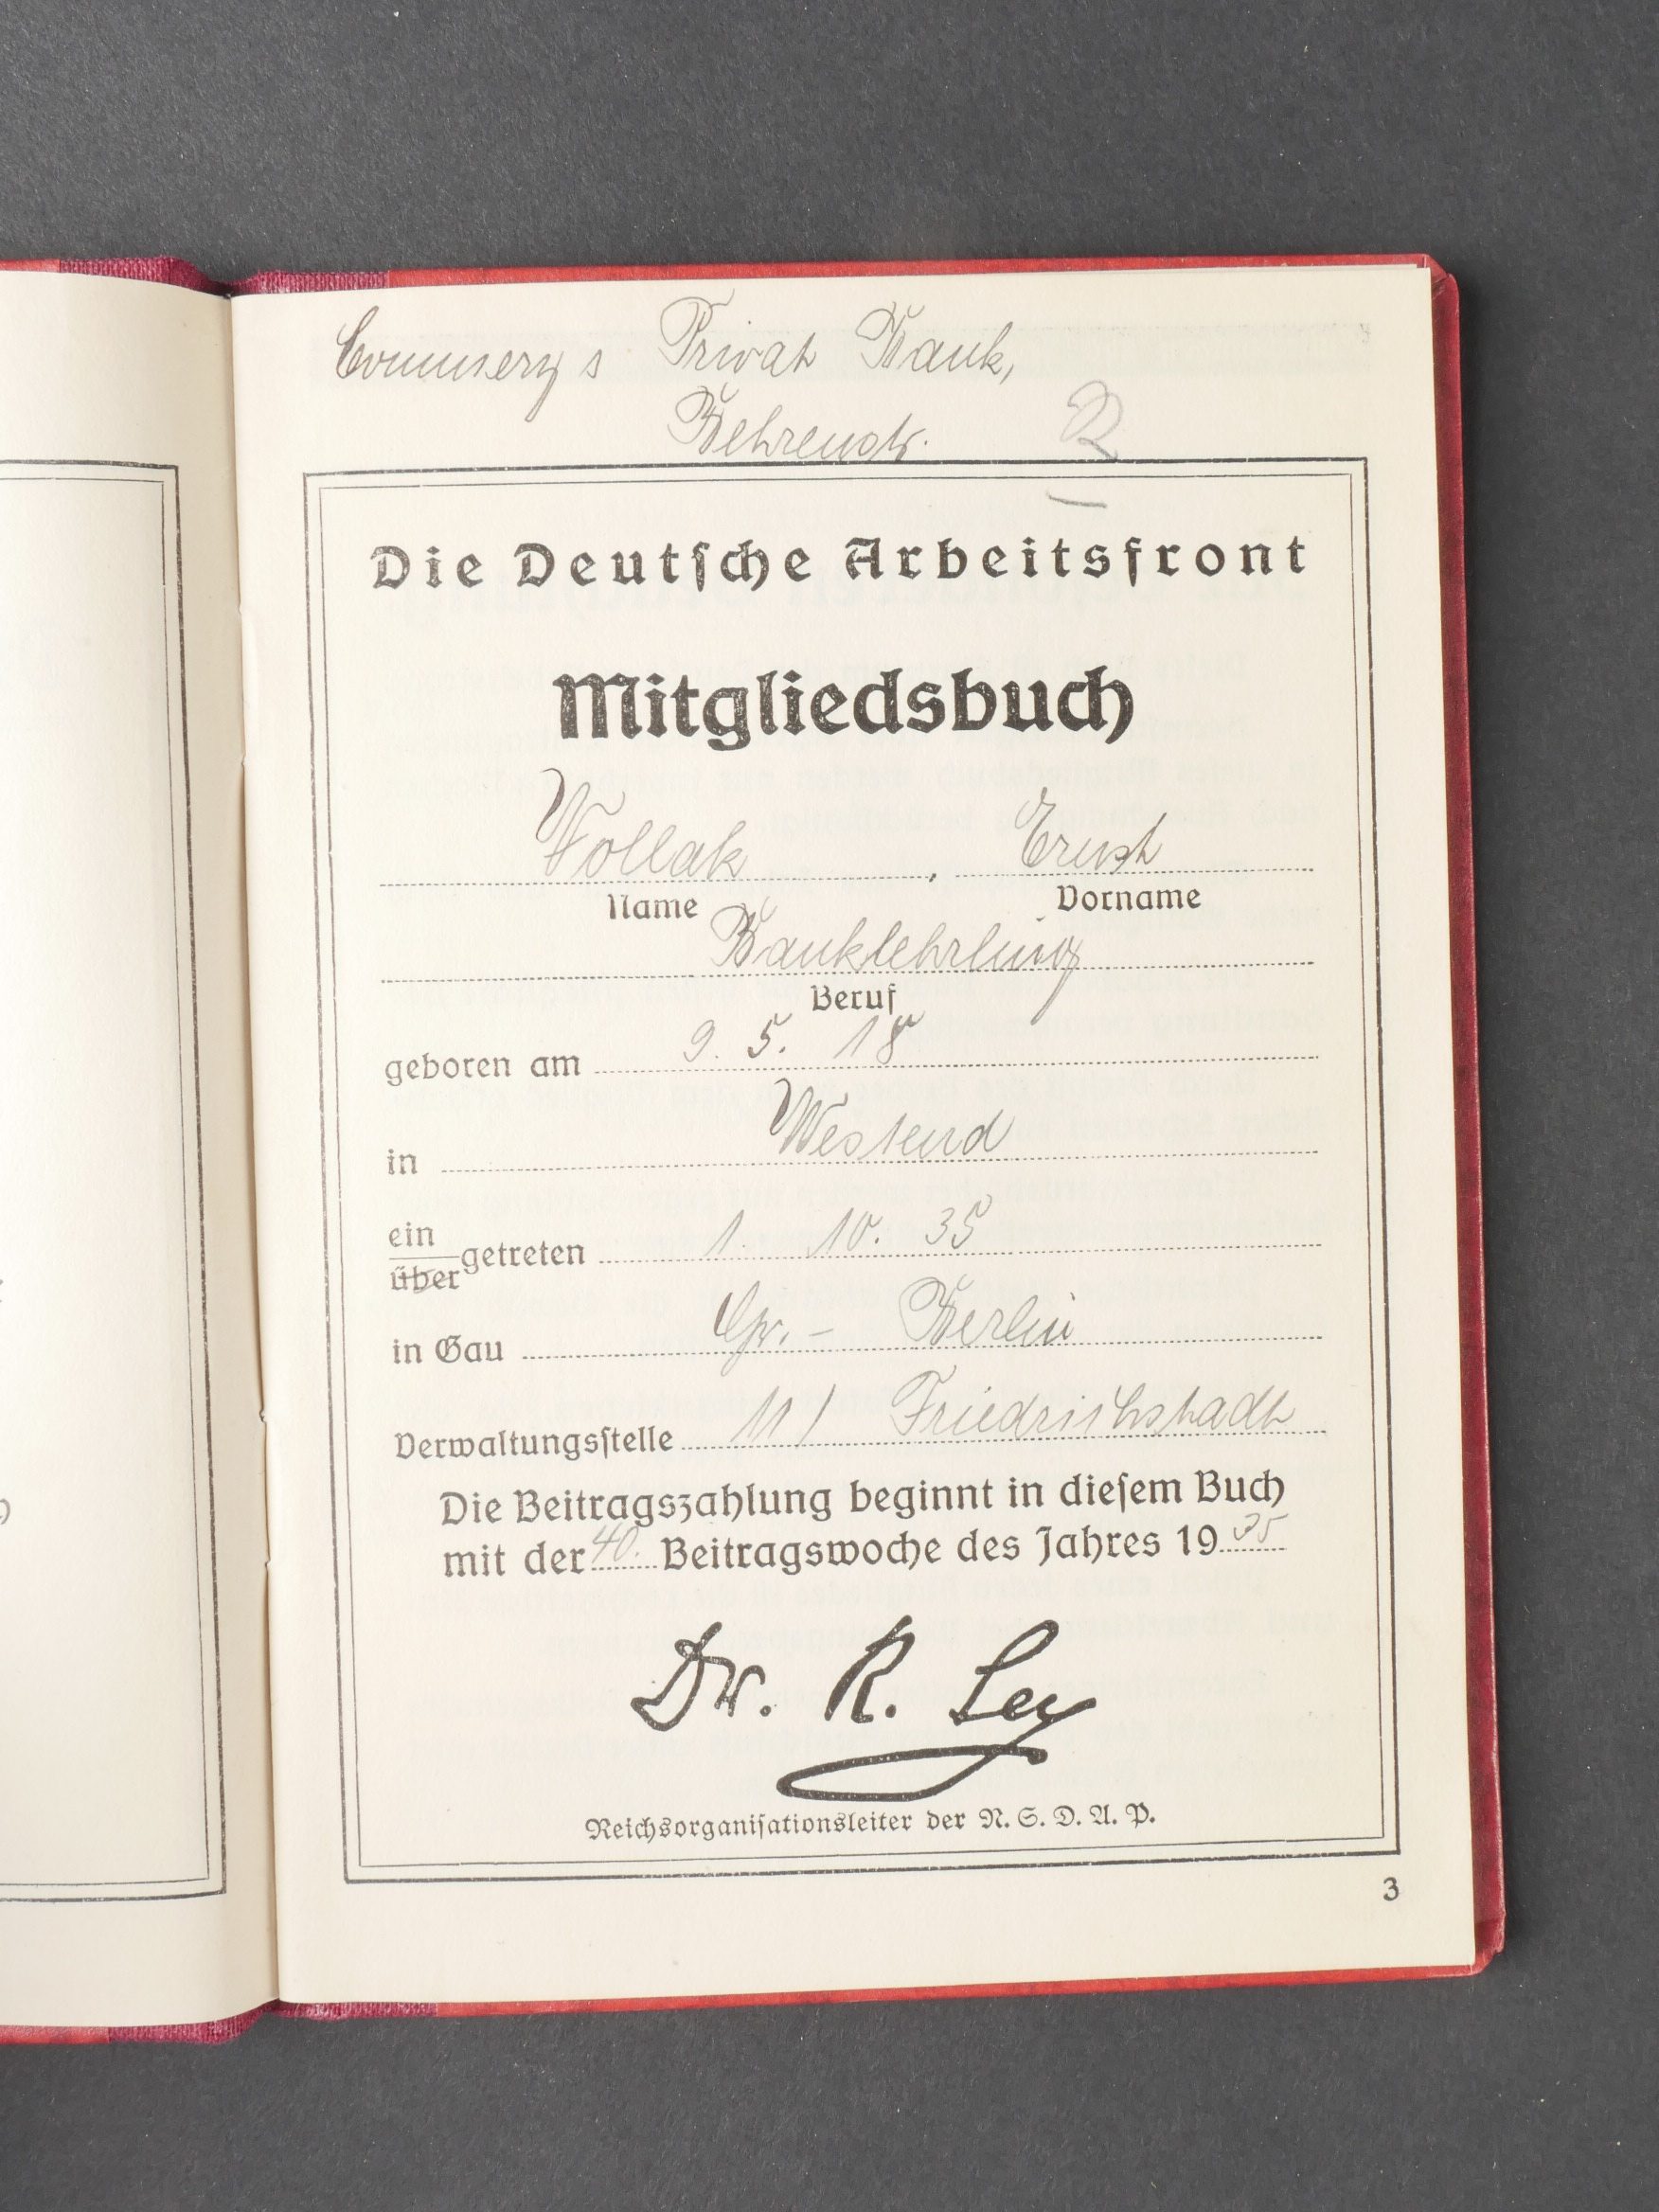 Commerz s Privat Bank,
Behrenstr.
Die Deutſche Arbeitsfront
Mitgliedsbuch
Wollak, Ernst
Name Vorname
Banklehrling
Beruf
geboren am 9. 5. 18
in Westend
ein
über getreten 1. 10. 35
in Gau Gr.- Berlin
Verwaltungsſtelle 11/ Friedrichstadt
Die Beitragszahlung beginnt in dieſem Buch
mit der 40. Beitragswoche des Jahres 1935
Dr. R. Ley
Reichsorganiſationsleiter der N. S. D. A. P.
3